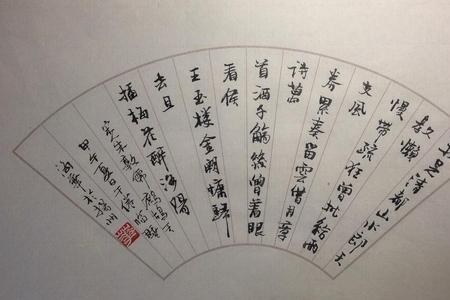 我是清都山水郎天
教懒
慢带疏狂曾批给雨
支风
券累奏留雲借月章
诗萬
首酒千觞幾曾着眼
看侯
王玉楼金阙慵歸
去且
插梅花醉洛陽
宋朱敦儒鹧鸪天
甲午夏日午後
於揚州